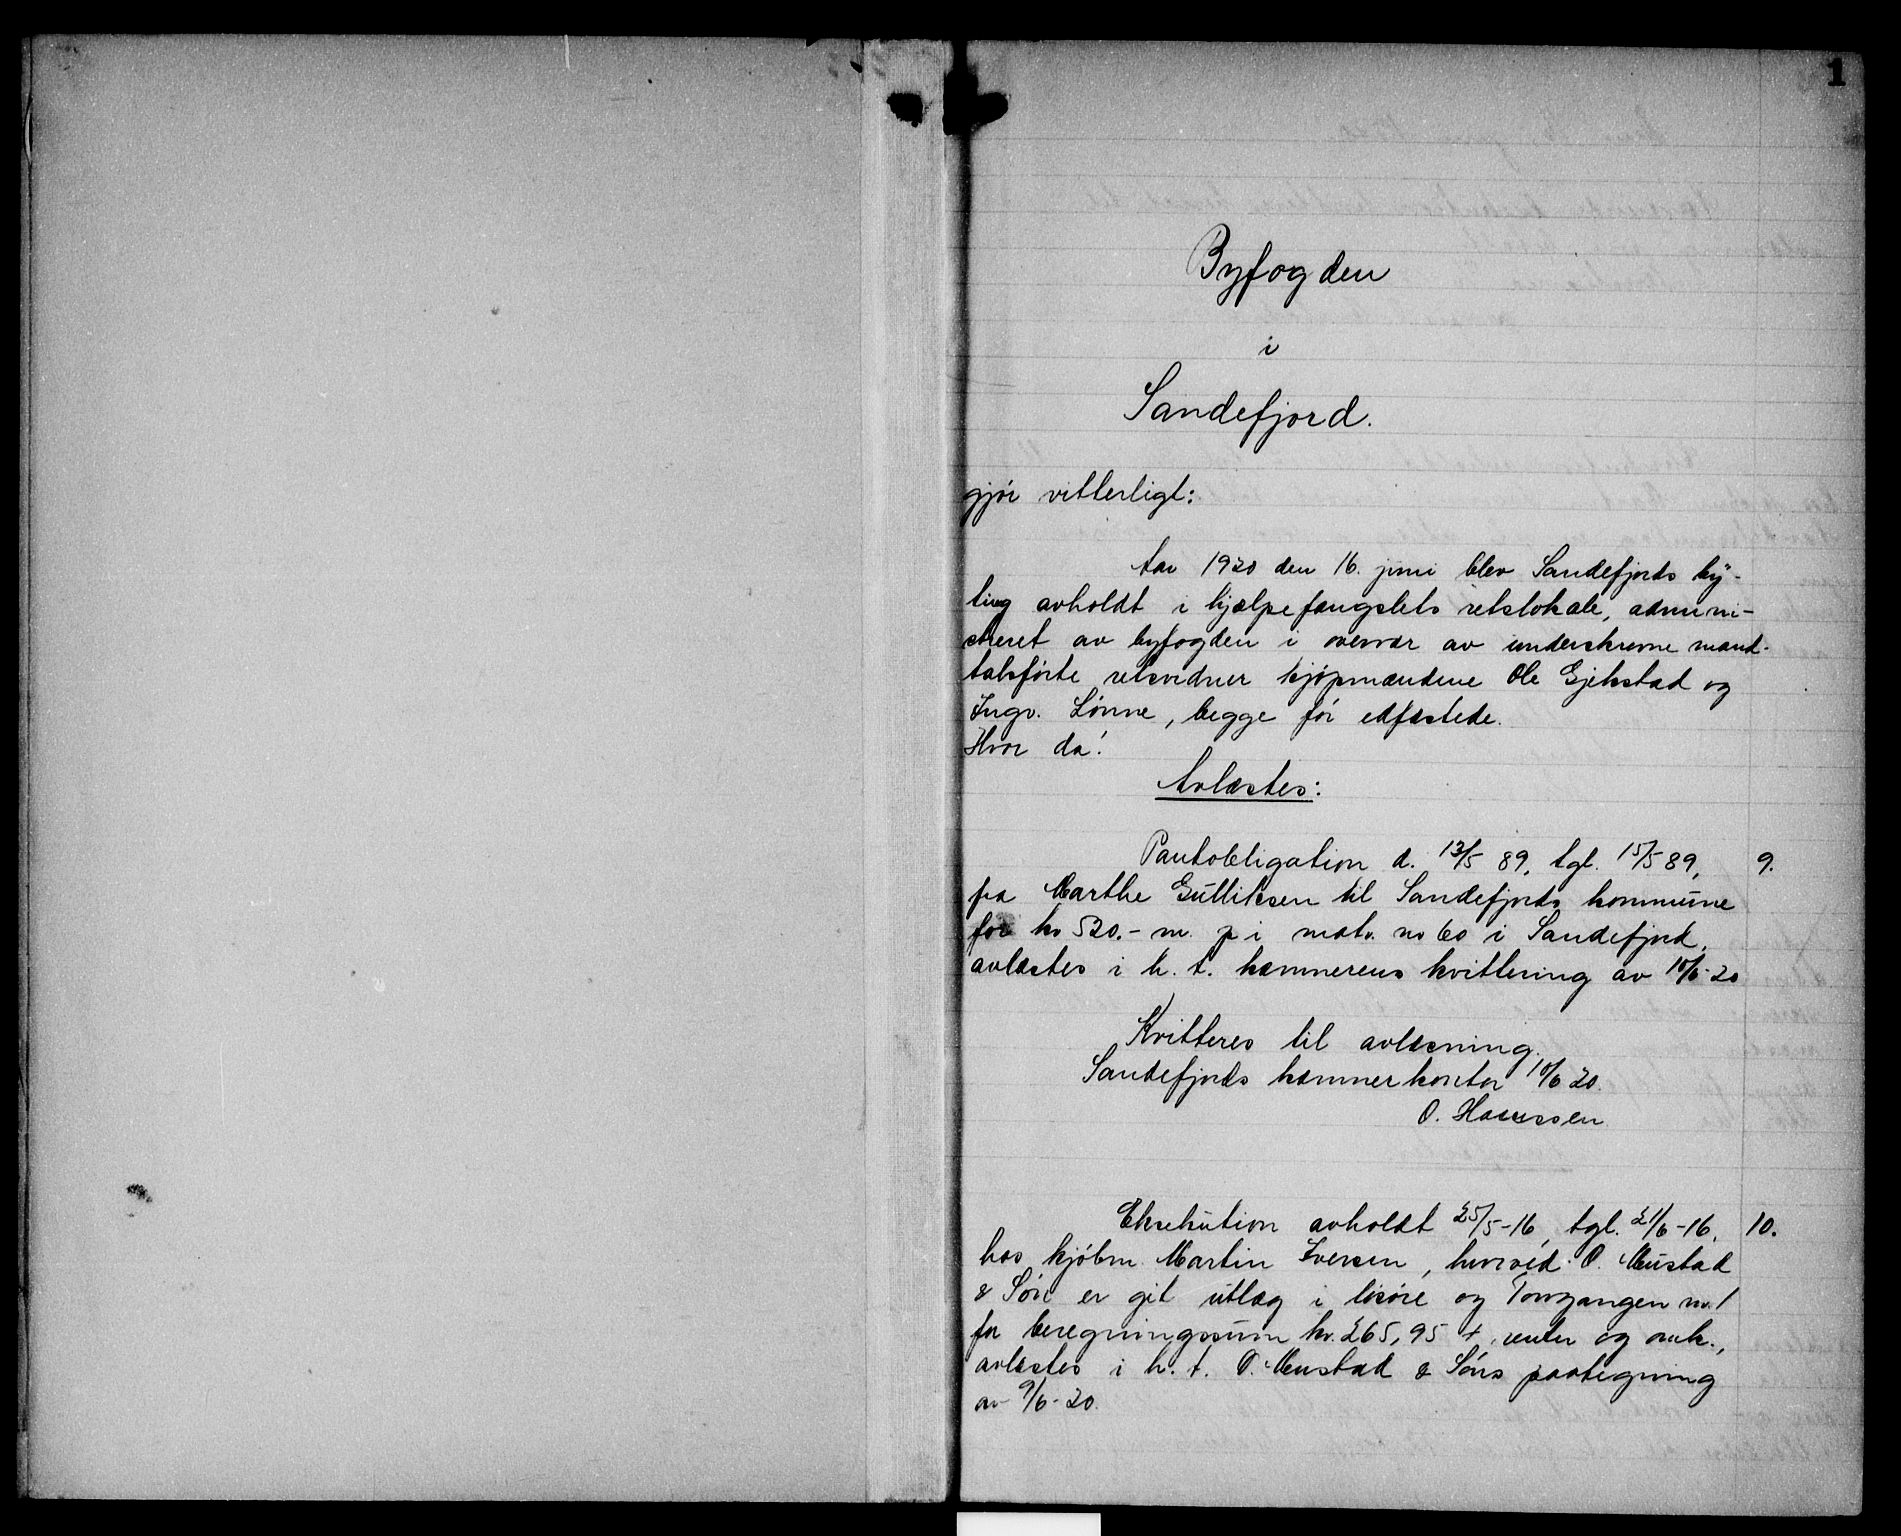 1
Byfogden
i
Sandefjord.
gjør vitterligt:
Aar 1920 den 16. juni blev Sandefjords by-
ting avholdt i hjælpefængslets retslokale, admini-
streret av byfogden i overvær av underskrevne mand-
talsførte retsvidner kjøpmændene Ole Gjekstad og
Ingv. Lønne, begge før edfæstede.
Hvor da:
Avlæstes:
Pantobligation d. 13/5 89, tgl. 15/5 89, 9.
fra Marthe Gulliksen til Sandefjords kommune
for kr 520.- m. p i matr. no 60 i Sandefjord,
avlæstes i h. t. kæmnerens kvittering av 10/6-20
Kvitteres til avlæsning.
Sandefjords kæmnerkontor 10/6 20.
O. Hanssen
Eksekution avholdt 25/5-16, tgl. 21/6-16, 10.
hos kjøbm. Martin Iversen, hvorved O. Mustad
& Søn er git utlæg i løsøre og Torvgangen no. 1
for beregningssum kr. 265,95 + renter og omk.,
avlæstes i h. t. O. Mustad & Søns paategning
av 9/6-20.